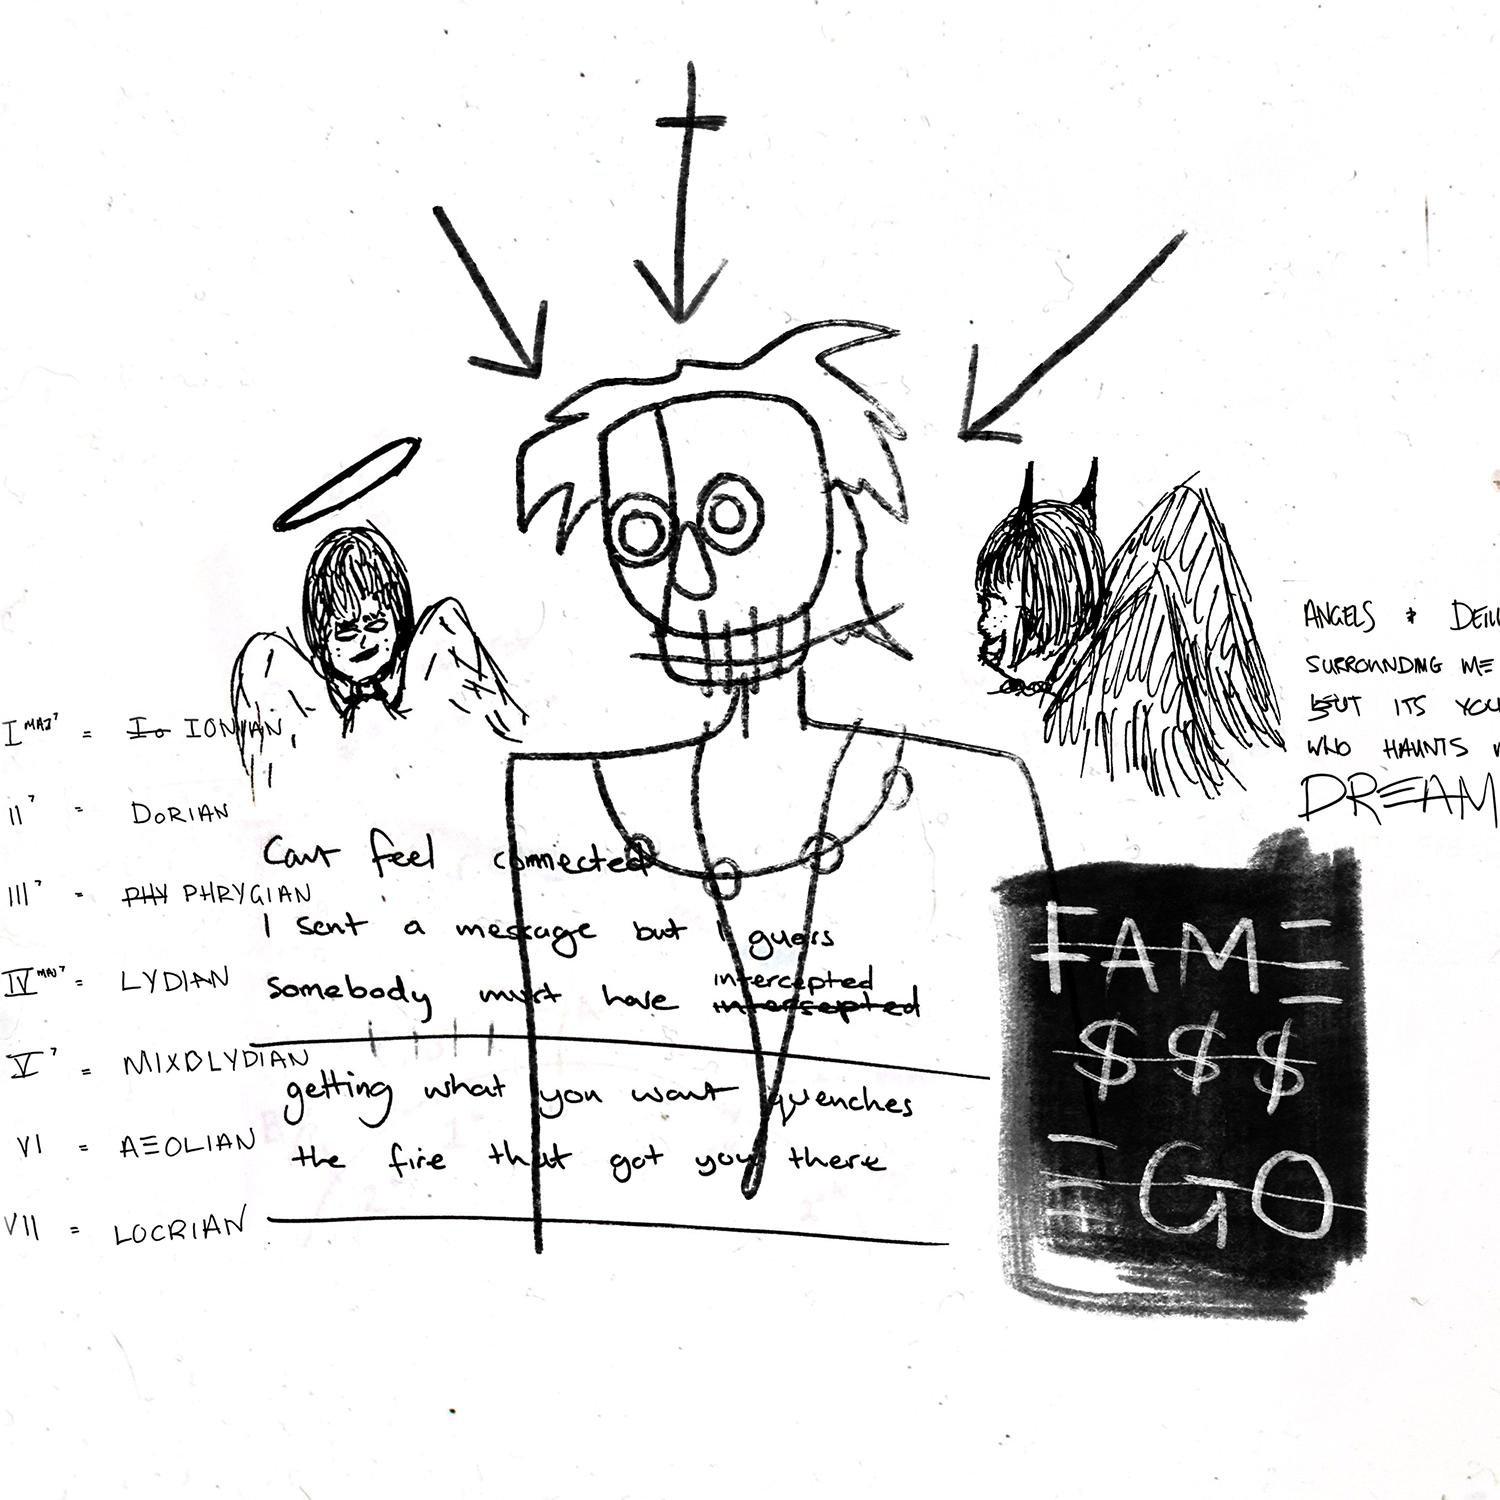 I MAJ7 = Io IONIAN
II7 = DORIAN
III7 = PHY PHRYGIAN
IV MAJ7 = LYDIAN
V7 = MIXOLYDIAN
VI = AEOLIAN
VII = LOCRIAN
Cant feel connected
I sent a message but I guess
somebody must have intercepted
intersepted
getting what you want quenches
the fire that got you there
ANGELS &
SURROUNDING ME
BUT ITS YOU
WHO HAUNTS
DREAM
FAME
$$$
EGO